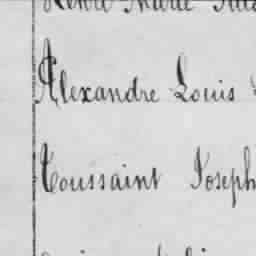 Henri Marie
Alexandre Louis
Toussaint Joseph